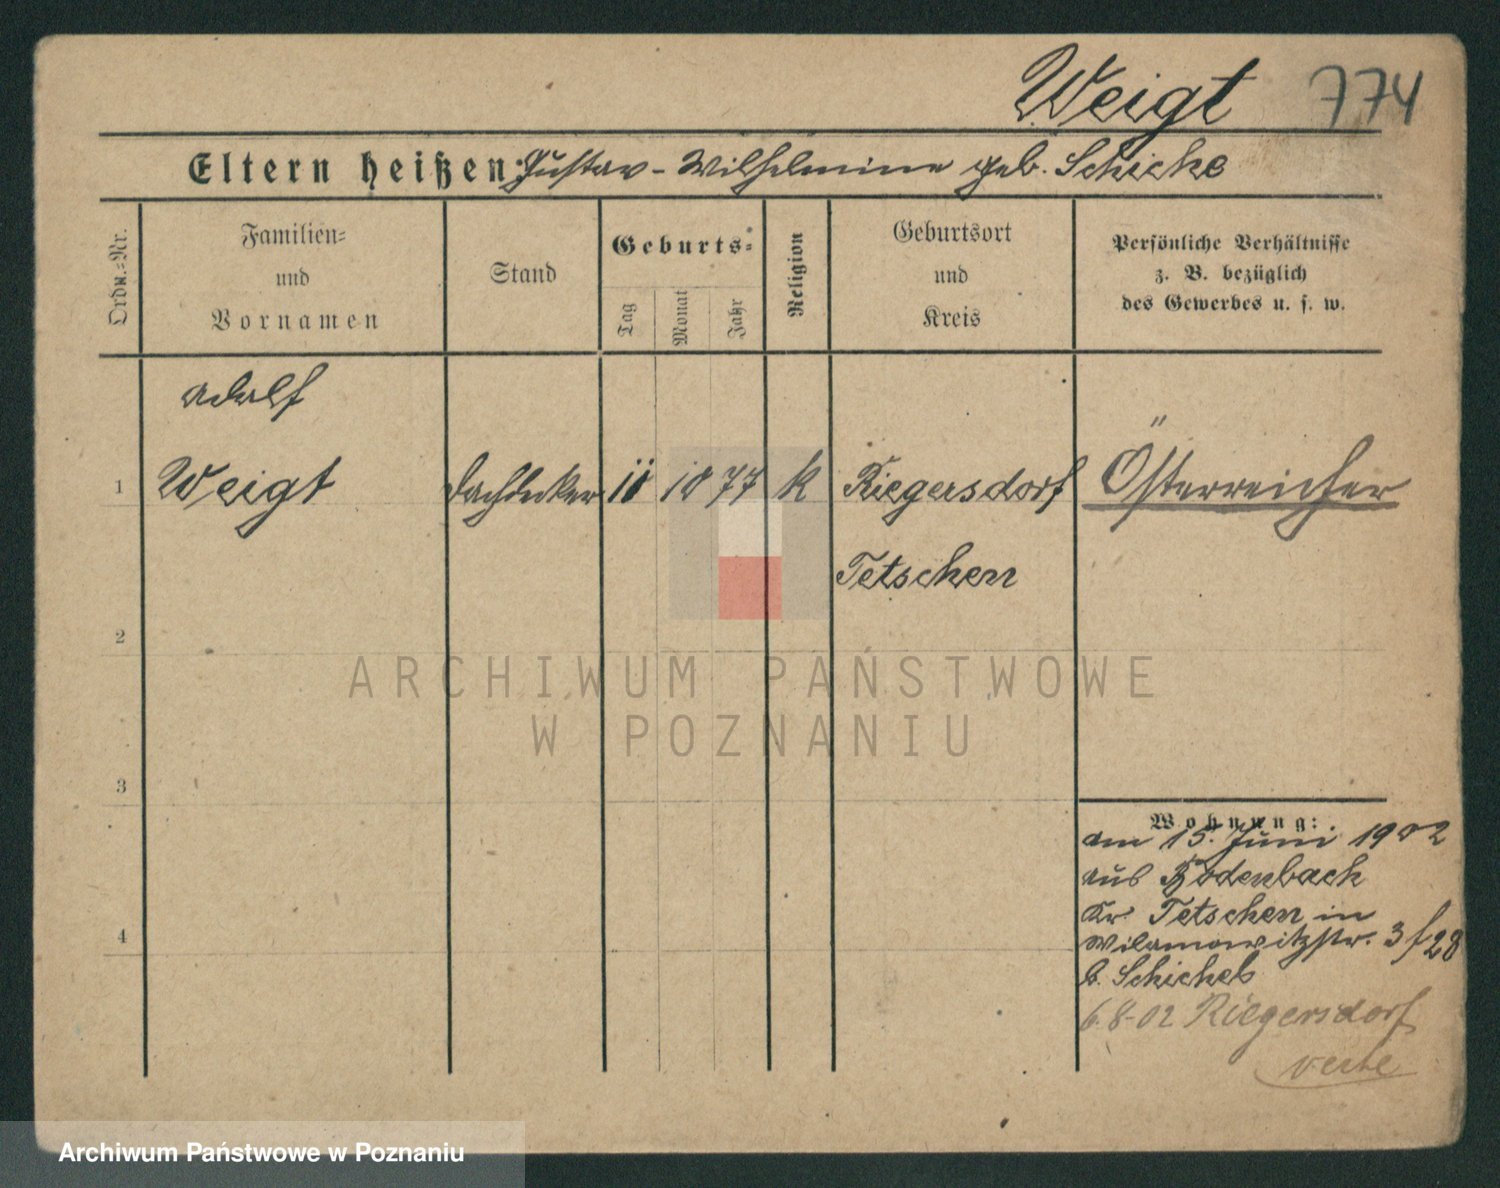 Weigt 774
Eltern heißen: Gustav - Wilhelmine geb. Schicke
Ordn.=Nr.
Familien=
und
Vornamen
Stand
Geburts=
Tag
Monat
Jahr
Religion
Geburtsort
und
Kreis
Persönliche Verhältnisse
z. B. bezüglich
des Gewerbes u. s. w.
Adolf
1 Weigt Dachdecker 10 77 k Riegersdorf Österreicher
Tetschen
2
ARCHIWUM PAŃSTWOWE
W POZNANIU
3
Wohnung:
am 15. Juni 1902
aus Bodenbach
Kr. Tetschen in
4
Wilamowitzstr. 3 f 28
b. Schickeb
6.8-02 Riegersdorf
verte
Archiwum Państwowe w Poznaniu